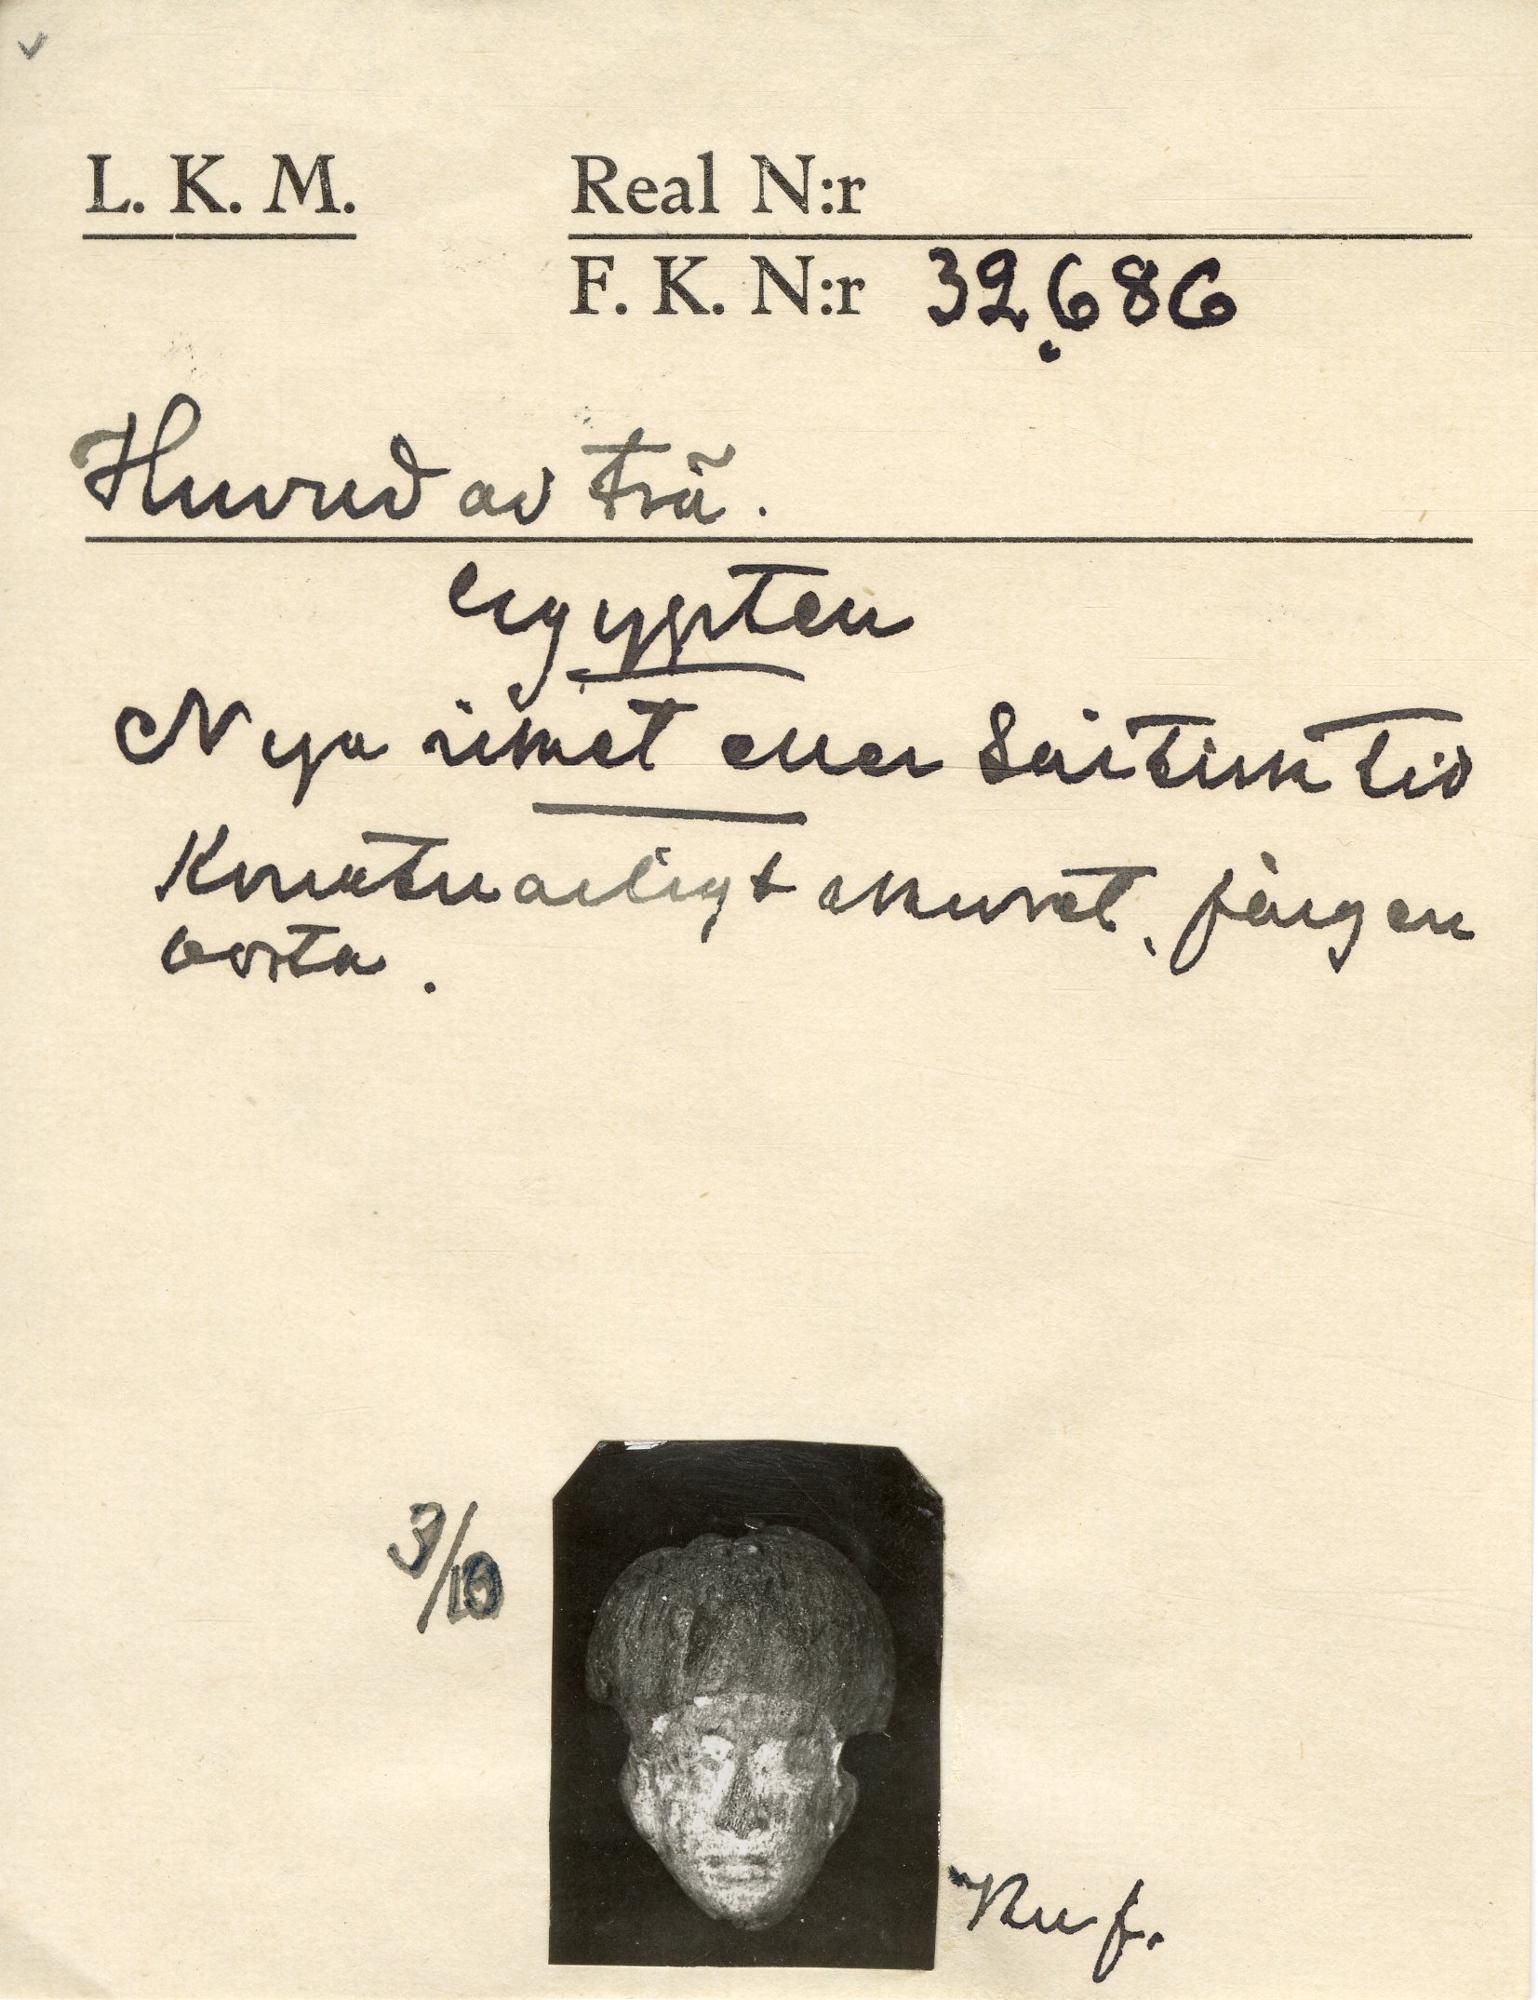 L. K. M. Real N:r
F. K. N:r 32.686
Huvud av trä.
Egypten
Nya riket eller Saitisk tid
Konstnärligt skuret, färgen
borta.
3/10
Ku f.